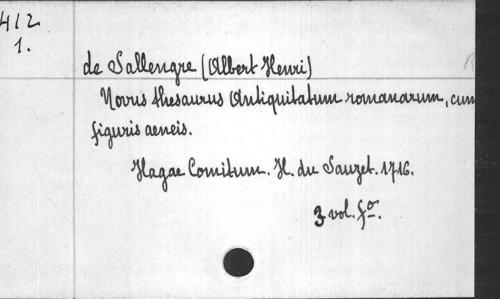 412
1.
de Sallengre (Albert Henri)
Novus thesaurus Antiquitatum romanarum, cum
figuris aeneis.
Hagae Comitum. H. du Sauzet. 1716.
3 vol. fº.